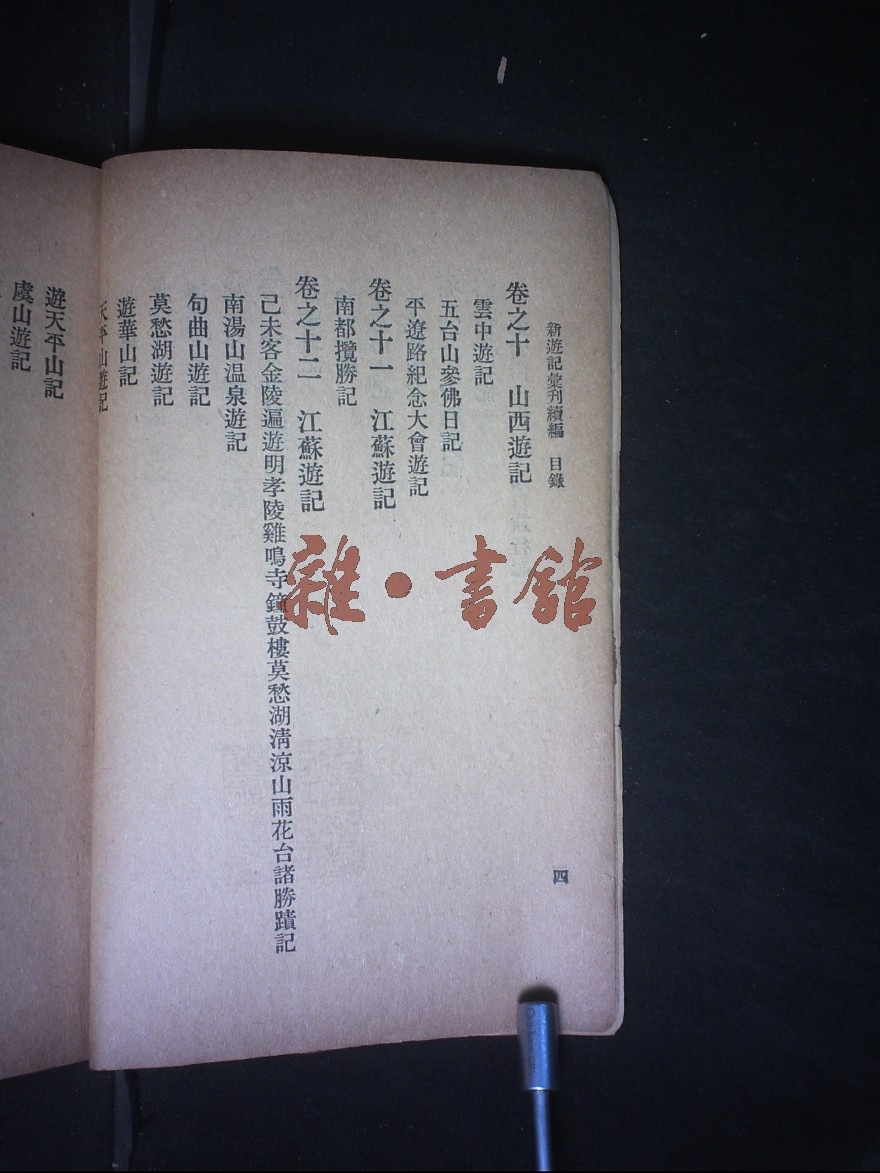 新遊記彙刊續編　目錄
四
卷之十　山西遊記
雲中遊記
五台山參佛日記
平遼路紀念大會遊記
卷之十一　江蘇遊記
南都攬勝記
卷之十二　江蘇遊記
己未客金陵遍遊明孝陵雞鳴寺鐘鼓樓莫愁湖清涼山雨花台諸勝蹟記
南湯山温泉遊記
句曲山遊記
莫愁湖遊記
遊華山記
天平山遊記
遊天平山記
虞山遊記
雜·書館